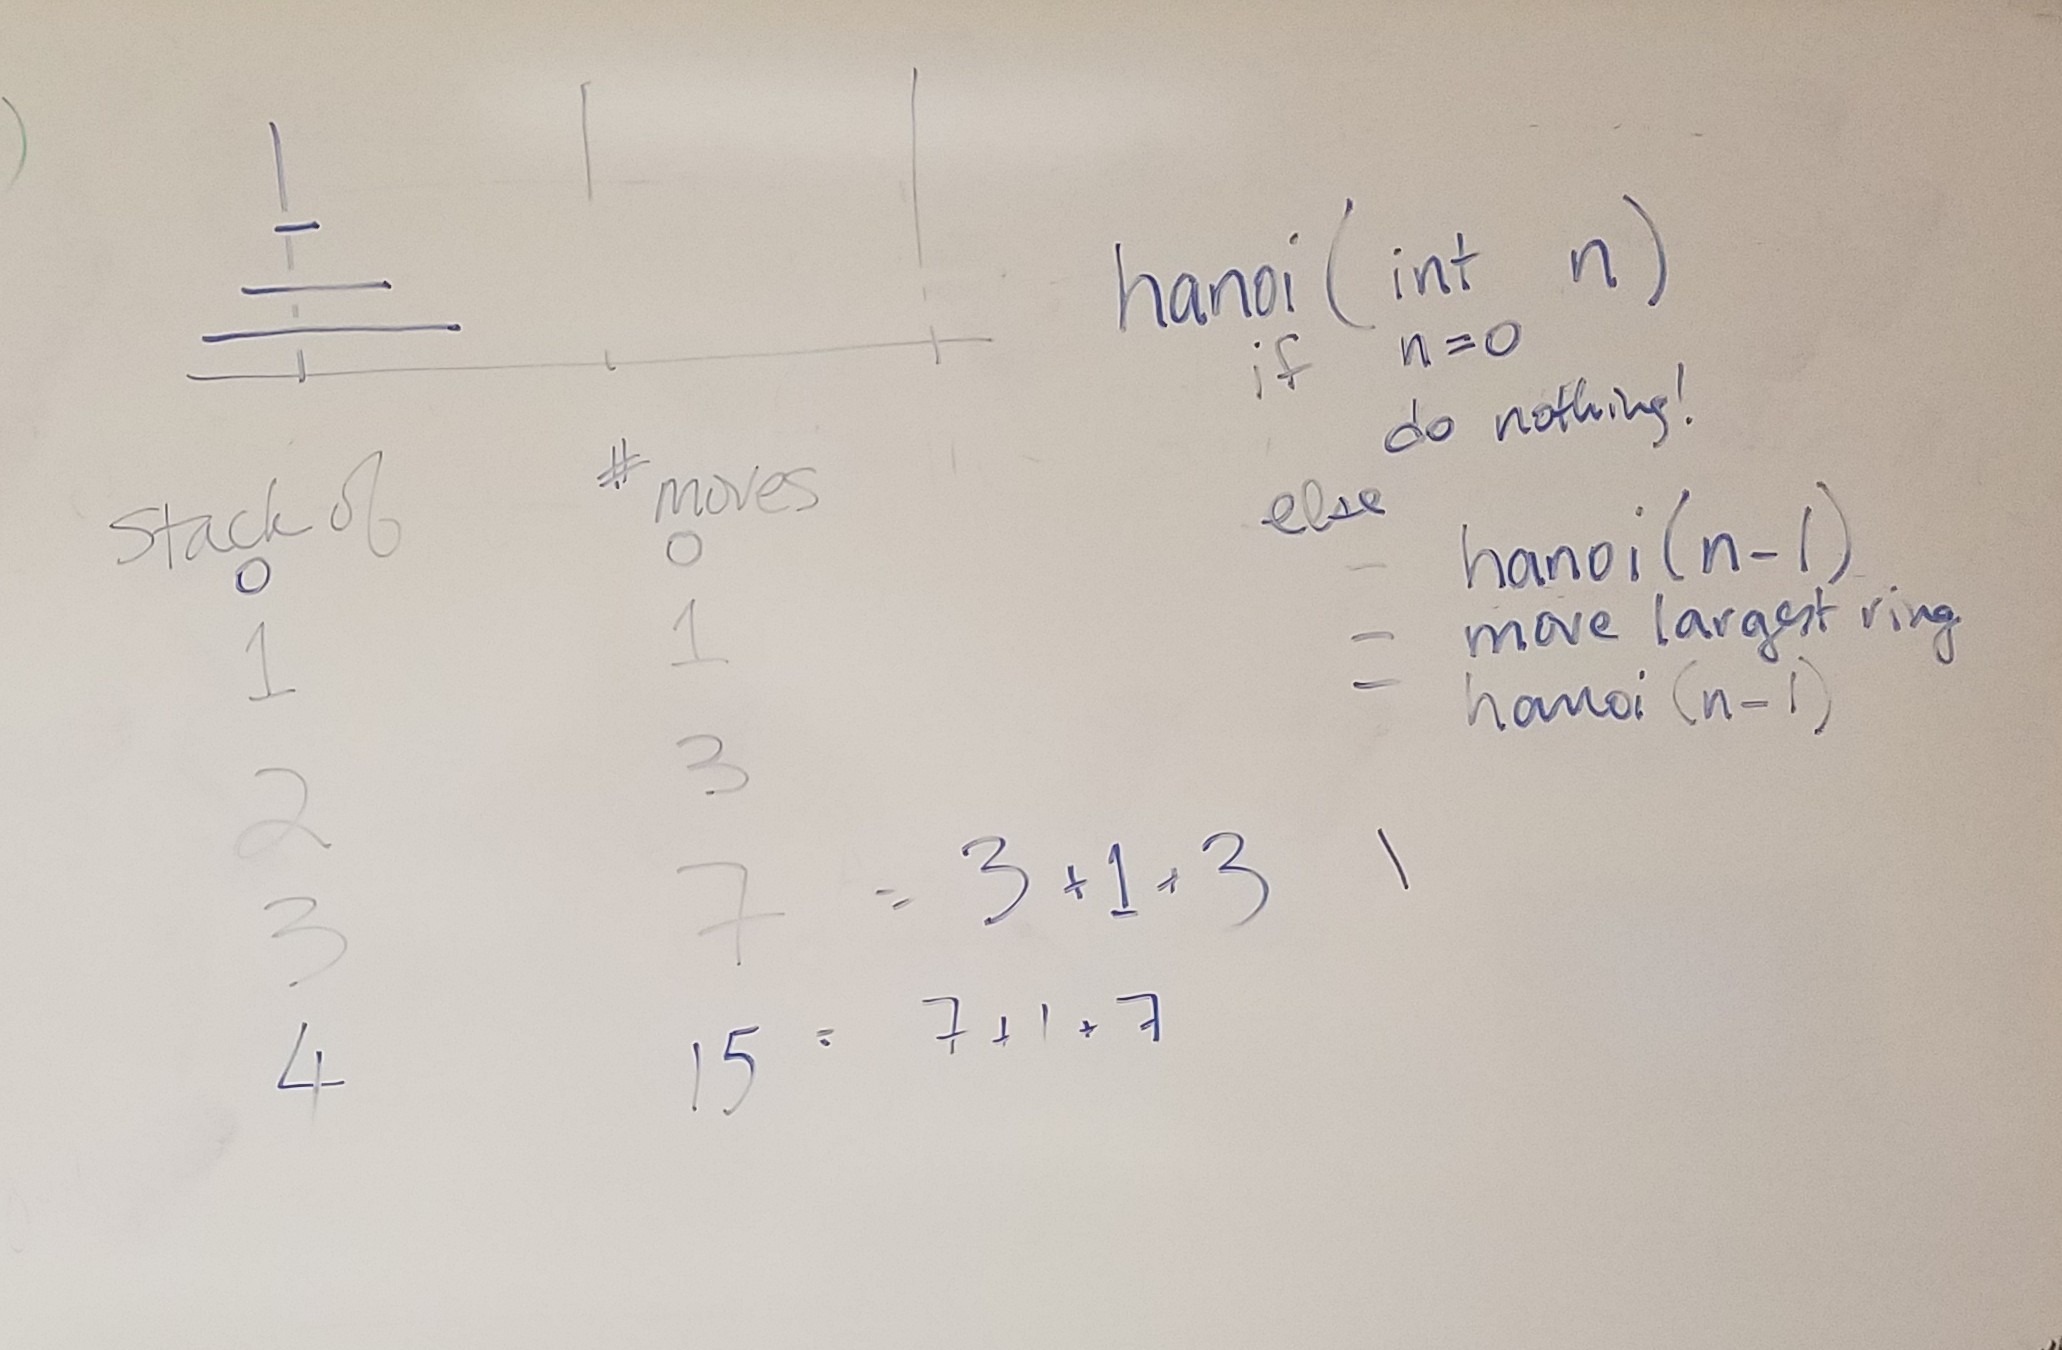 hanoi ( int n )
if n=0
do nothing!
else
- hanoi (n-1)
- move largest ring
- hanoi (n-1)
stack of # moves
0 0
1 1
2 3
3 7 = 3+1+3
4 15 = 7+1+7